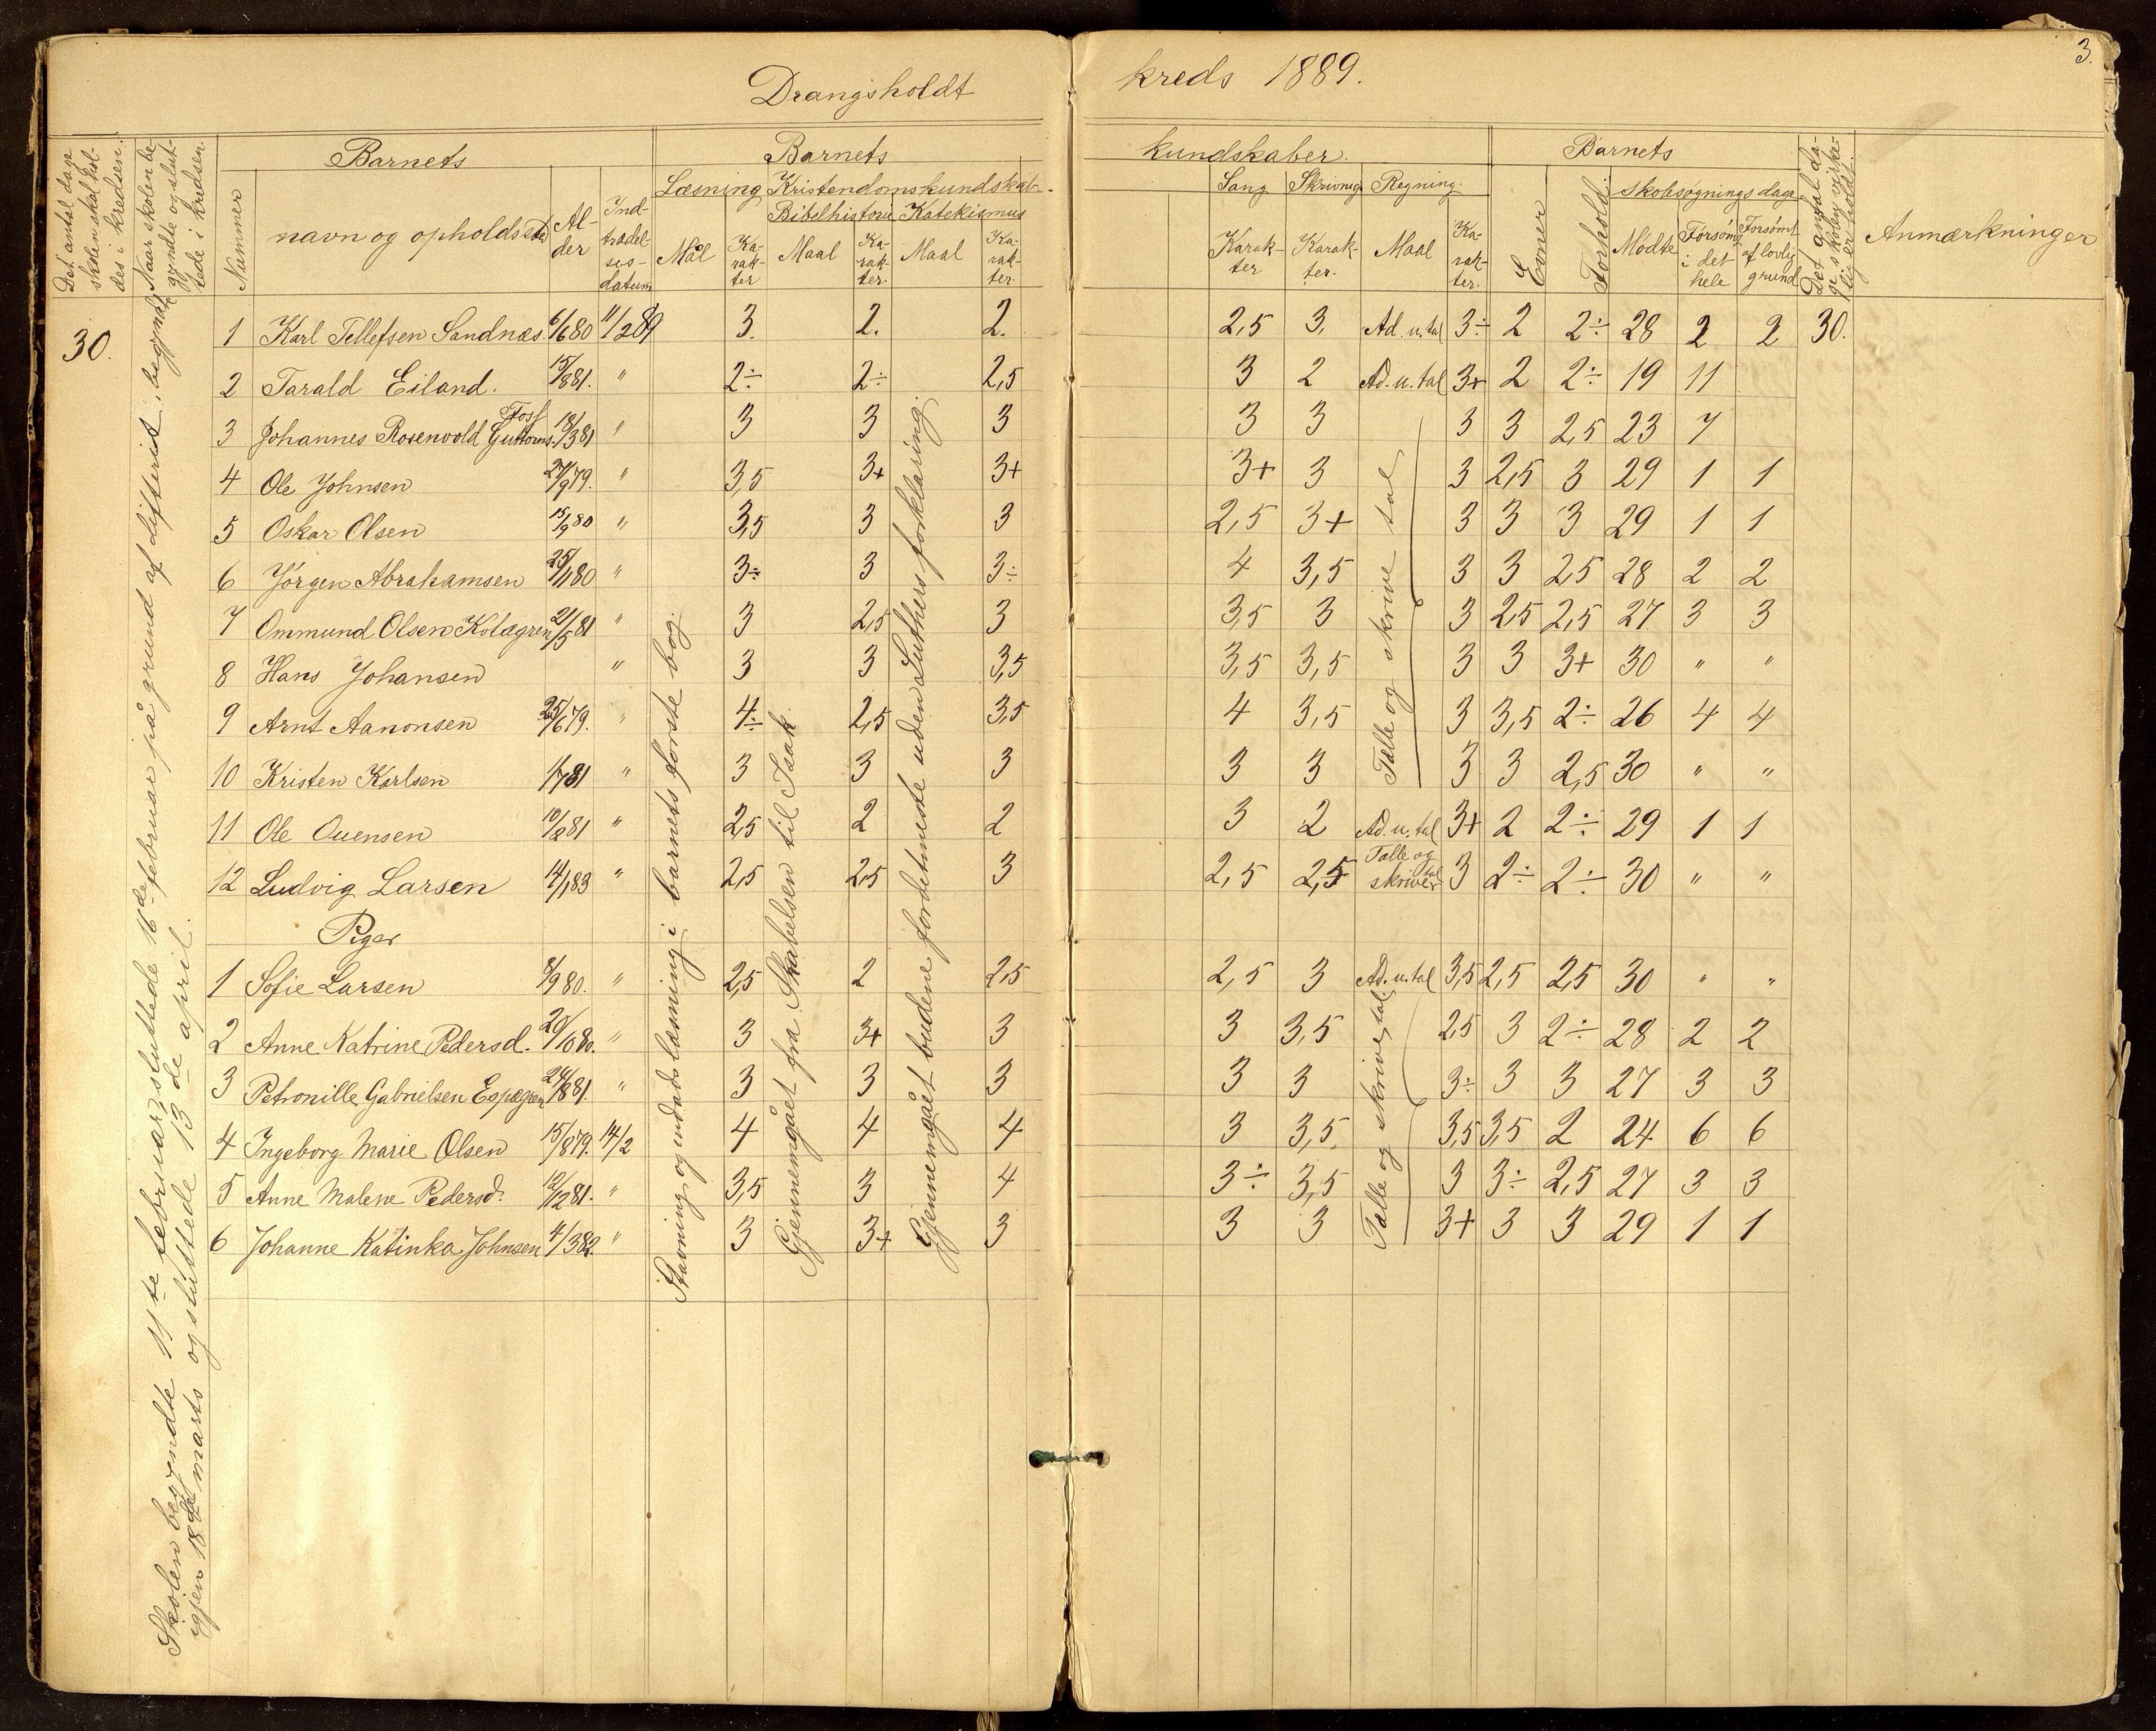 3.
Drangsholdt kreds 1889.
Det antal dage skolen skal holdes i kredsen.
Naar skolen begyndte og sluttede i kredsen
Barnets
Nummer
navn og opholdssted
Alder
Indtrædelsesdatum
Barnets kundskaber.
Læsning
Mål
Karakter
Kristendomskundskab.
Bibelhistorie
Maal
Karakter
Katekismus
Maal
Karakter
Sang
Karakter
Skrivning
Karakter.
Regning.
Maal
Karakter.
Barnets
Evner
Forhold
skolesøgnings dage
Mødte
Forsømt i det hele
Forsømt af lovlig grund
Det antal dage skolen virkelig er holdt.
Anmærkninger
30.
Skolen begyndte 11te februar, sluttede 16de februar på grund af difterit; begyndte
igjen 18de marts og sluttede 13de april.
Stavning og indadslæsning i barnets første bog
Gjennemgået fra Skabelsen til Isak.
Gjennemgået budene fordetmeste uden Luthers forklaring.
1 Karl Tellefsen Sandnæs. 6/6 80 11/2 89 3. 2. 2. 2,5 3. Ad. u. tal 3÷ 2 2÷ 28 2 2 30.
2 Tarald Eiland. 15/8 81. " 2÷ 2÷ 2,5 3 2 Ad. u. tal 3+ 2 2÷ 19 11
3 Johannes Rosenvold Guttorms. Foss 18/3 81 " 3 3 3 3 3 3 3 2,5 23 7
4 Ole Johnsen 27/9 79. " 3,5 3+ 3+ 3+ 3 3 2,5 3 29 1 1
5 Oskar Olsen 15/9 80 " 3,5 3 3 2,5 3+ 3 3 3 29 1 1
6 Jørgen Abrahamsen 25/1 80 " 3÷ 3 3÷ 4 3,5 3 3 2,5 28 2 2
7 Ommund Olsen Kolægren 21/5 81 " 3 2,5 3 3,5 3 3 2,5 2,5 27 3 3
8 Hans Johansen " 3 3 3,5 3,5 3,5 3 3 3+ 30 " "
9 Arnt Aanonsen 25/6 79. " 4÷ 2,5 3,5 4 3,5 3 3,5 2÷ 26 4 4
10 Kristen Karlsen 1/7 81 " 3 3 3 3 3 3 3 2,5 30 " "
Tælle og skrive tal
11 Ole Ouensen 10/2 81 " 2,5 2 2 3 2 Ad. u. tal 3+ 2 2÷ 29 1 1
12 Ludvig Larsen 14/1 83 " 2,5 2,5 3 2,5 2,5 Tælle og skrive tal 3 2÷ 2÷ 30 " "
Piger
1 Sofie Larsen 8/9 80. " 2,5 2 2,5 2,5 3 Ad. u. tal 3,5 2,5 2,5 30 " "
2 Anne Katrine Pedersd. 20/10 80. " 3 3+ 3 3 3,5 2,5 3 2÷ 28 2 2
3 Petronille Gabrielsen Espegren 24/8 81. " 3 3 3 3 3 3÷ 3 3 27 3 3
4 Ingeborg Marie Olsen 15/8 79. 14/2 4 4 4 3 3,5 3,5 3,5 2 24 6 6
5 Anne Malene Pedersd. 12/12 81. " 3,5 3 4 3÷ 3,5 3 3÷ 2,5 27 3 3
6 Johanne Katinka Johnsen 4/3 82. " 3 3+ 3 3 3 3+ 3 3 29 1 1
Tælle og skrive tal